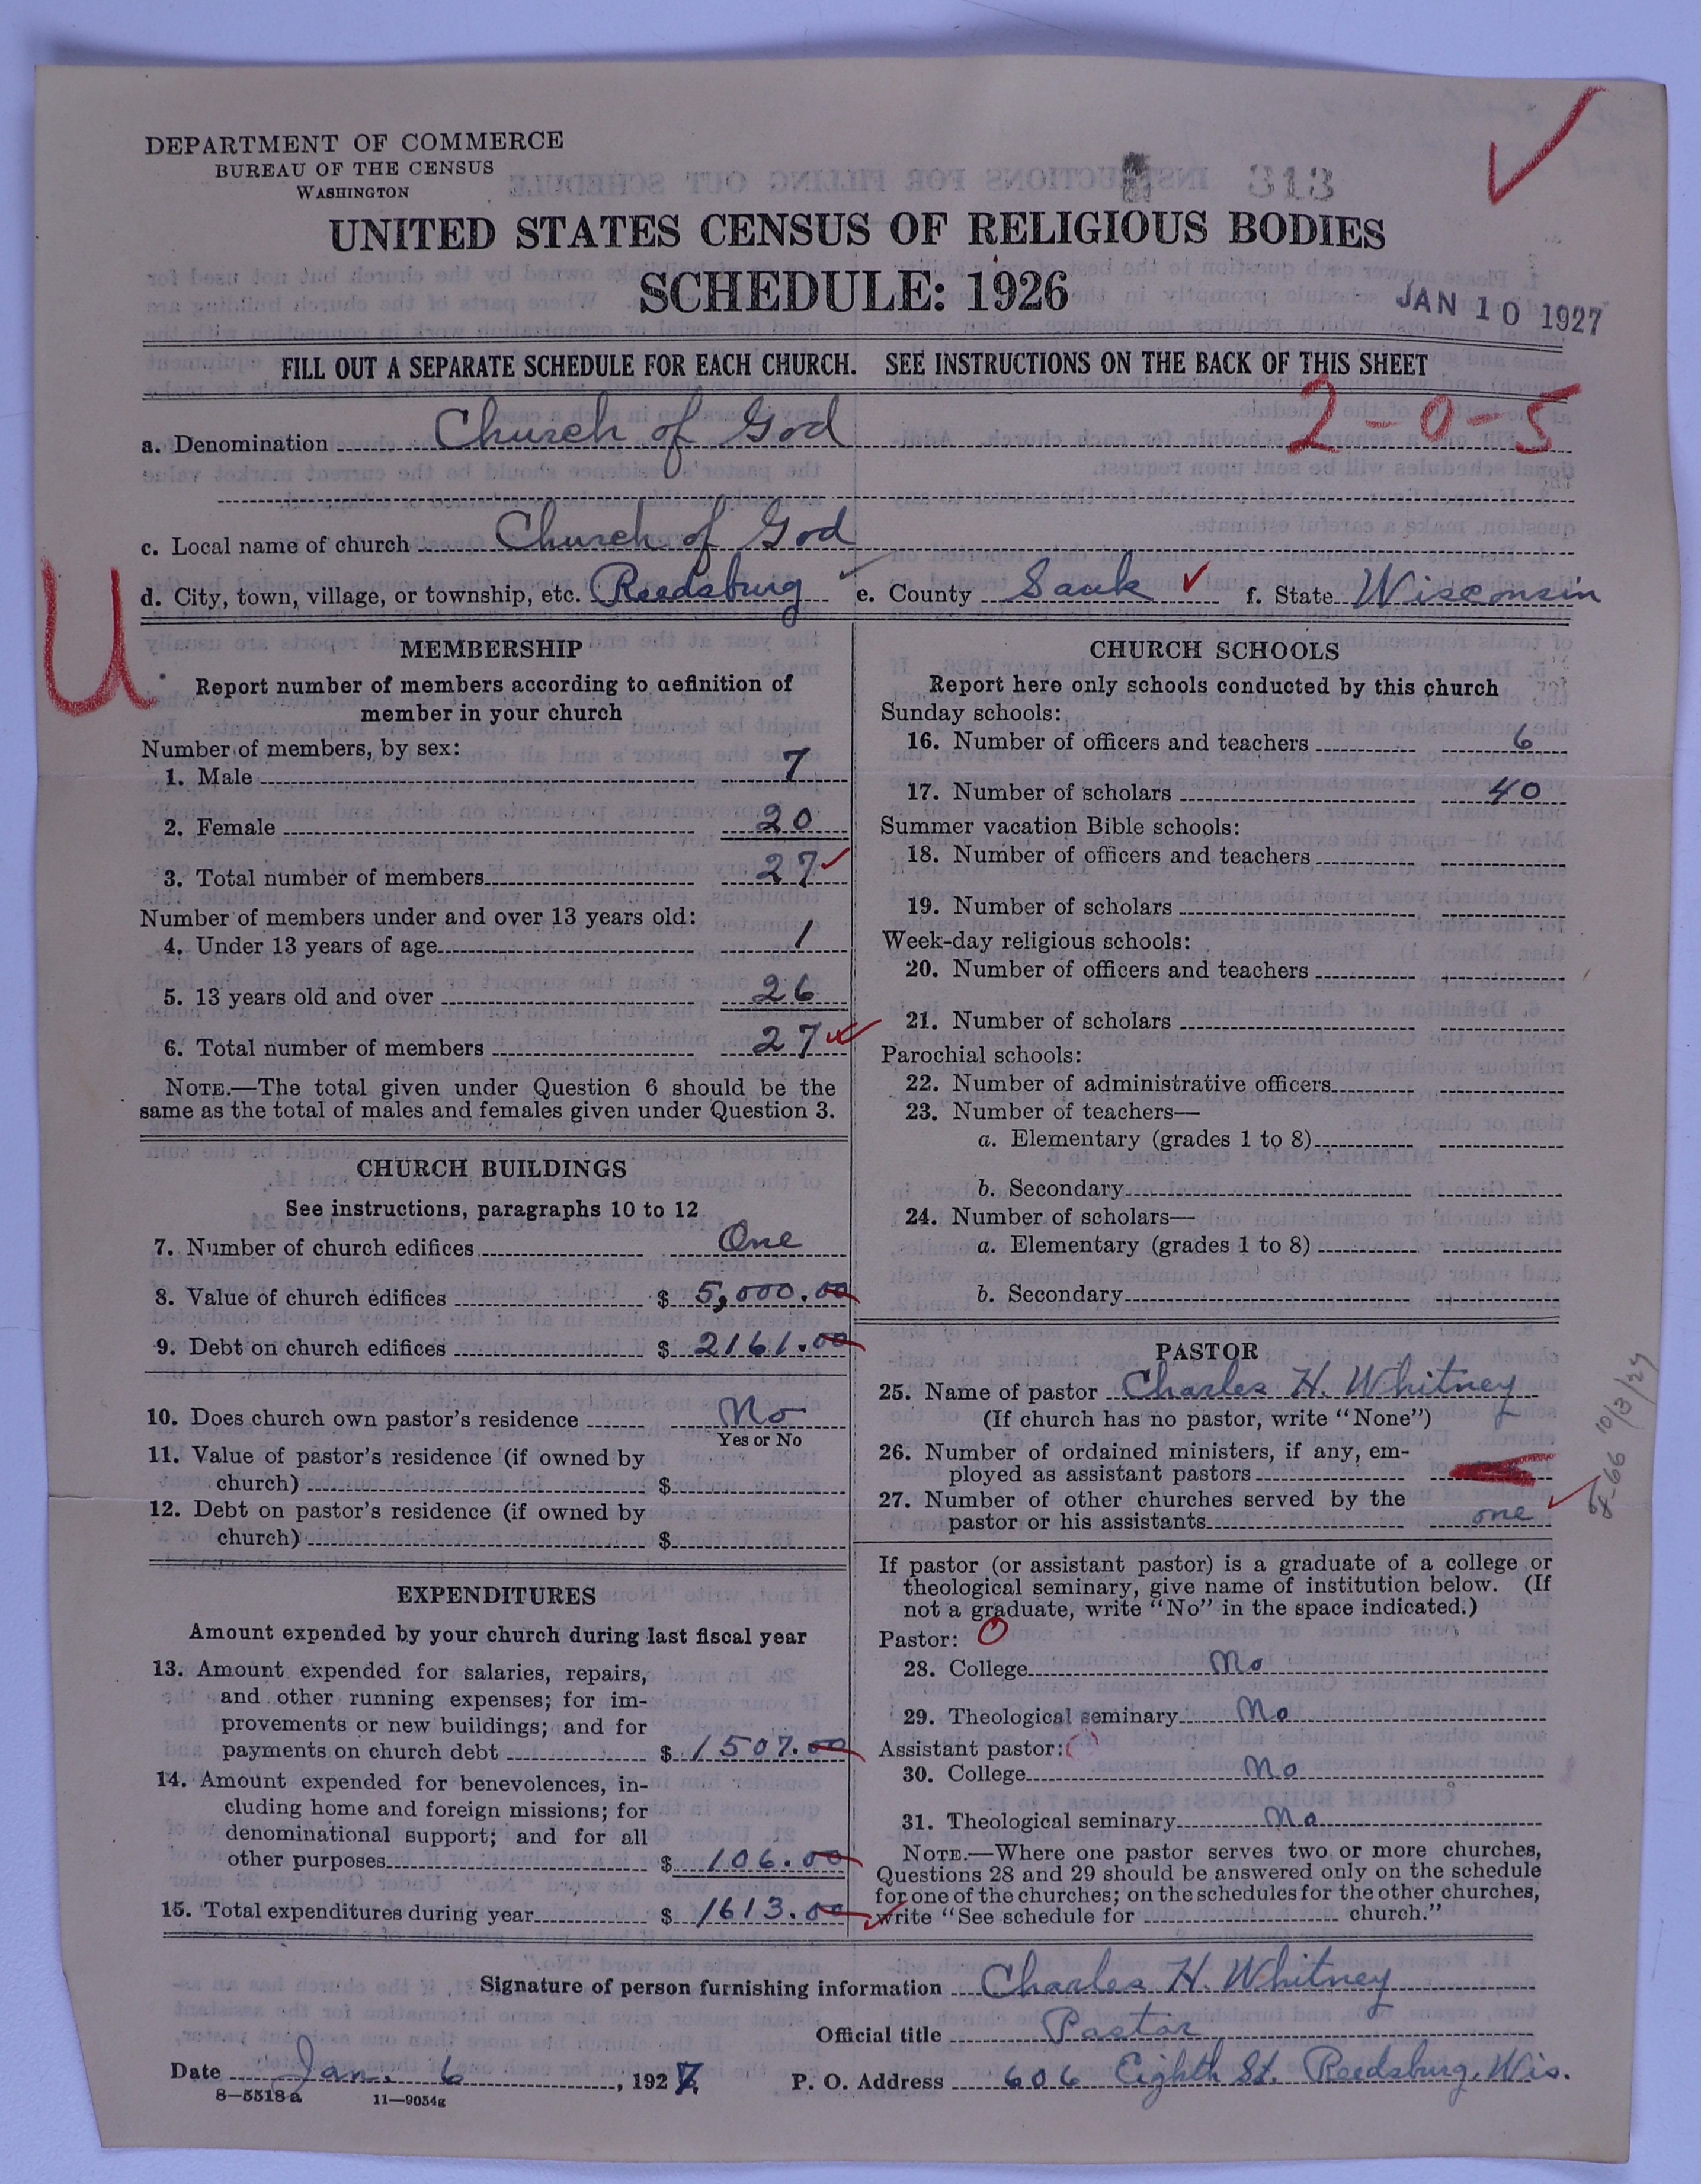 DEPARTMENT OF COMMERCE
BUREAU OF THE CENSUS
WASHINGTON
313
UNITED STATES CENSUS OF RELIGIOUS BODIES
SCHEDULE: 1926
JAN 10 1927
FILL OUT A SEPARATE SCHEDULE FOR EACH CHURCH. SEE INSTRUCTIONS ON THE BACK OF THIS SHEET
2-0-5
a. Denomination Church of God
c. Local name of church Church of God
d. City, town, village, or township, etc. Reedsburg e. County Sauk f. State Wisconsin
U
MEMBERSHIP
Report number of members according to definition of
member in your church
Number of members, by sex:
1. Male 7
2. Female 20
3. Total number of members 27
Number of members under and over 13 years old:
4. Under 13 years of age 1
5. 13 years old and over 26
6. Total number of members 27
NOTE.—The total given under Question 6 should be the
same as the total of males and females given under Question 3.
CHURCH BUILDINGS
See instructions, paragraphs 10 to 12
7. Number of church edifices One
8. Value of church edifices $ 5,000.00
9. Debt on church edifices $ 2161.00
10. Does church own pastor's residence No
Yes or No
11. Value of pastor's residence (if owned by
church) $
12. Debt on pastor's residence (if owned by
church) $
EXPENDITURES
Amount expended by your church during last fiscal year
13. Amount expended for salaries, repairs,
and other running expenses; for im-
provements or new buildings; and for
payments on church debt $ 1507.00
14. Amount expended for benevolences, in-
cluding home and foreign missions; for
denominational support; and for all
other purposes $ 106.00
15. Total expenditures during year $ 1613.00
CHURCH SCHOOLS
Report here only schools conducted by this church
Sunday schools:
16. Number of officers and teachers 6
17. Number of scholars 40
Summer vacation Bible schools:
18. Number of officers and teachers
19. Number of scholars
Week-day religious schools:
20. Number of officers and teachers
21. Number of scholars
Parochial schools:
22. Number of administrative officers
23. Number of teachers—
a. Elementary (grades 1 to 8)
b. Secondary
24. Number of scholars—
a. Elementary (grades 1 to 8)
b. Secondary
PASTOR
25. Name of pastor Charles H. Whitney
(If church has no pastor, write "None")
26. Number of ordained ministers, if any, em-
ployed as assistant pastors
27. Number of other churches served by the
pastor or his assistants one
If pastor (or assistant pastor) is a graduate of a college or
theological seminary, give name of institution below. (If
not a graduate, write "No" in the space indicated.)
Pastor: 0
28. College No
29. Theological seminary No
Assistant pastor:
30. College No
31. Theological seminary No
NOTE.—Where one pastor serves two or more churches,
Questions 28 and 29 should be answered only on the schedule
for one of the churches; on the schedules for the other churches,
write "See schedule for church."
Signature of person furnishing information Charles H. Whitney
Official title Pastor
Date Jan. 6, 1927 P. O. Address 606 Eighth St. Reedsburg, Wis.
8—5518a 11—9054g